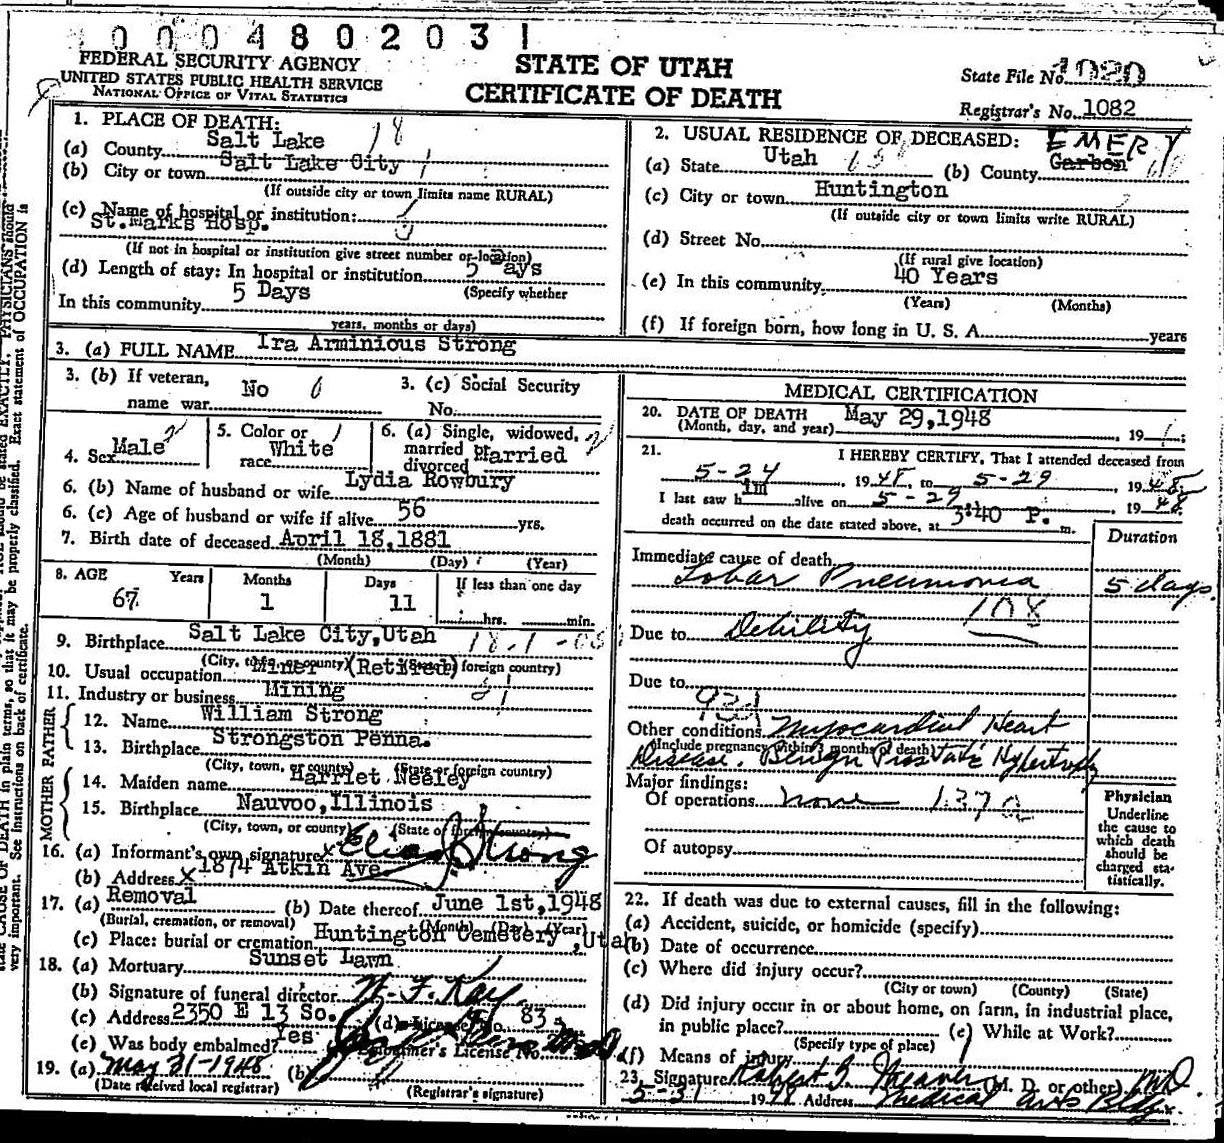 0 0 0 4 8 0 2 0 3 1
FEDERAL SECURITY AGENCY
UNITED STATES PUBLIC HEALTH SERVICE
NATIONAL OFFICE OF VITAL STATISTICS
STATE OF UTAH
CERTIFICATE OF DEATH
State File No. 1020
Registrar's No. 1082
1. PLACE OF DEATH:
(a) County Salt Lake 18
(b) City or town Salt Lake City 1
(If outside city or town limits name RURAL)
(c) Name of hospital or institution:
St.Marks Hosp.
(If not in hospital or institution give street number or location)
(d) Length of stay: In hospital or institution 5 Days
(Specify whether
In this community 5 Days
years, months or days)
2. USUAL RESIDENCE OF DECEASED: EMERY
(a) State Utah (b) County Carbon
(c) City or town Huntington
(If outside city or town limits write RURAL)
(d) Street No.
(If rural give location)
(e) In this community 40 Years
(Years) (Months)
(f) If foreign born, how long in U. S. A. years
3. (a) FULL NAME Ira Arminious Strong
3. (b) If veteran, name war No 0
3. (c) Social Security No.
4. Sex Male 2
5. Color or race White 1
6. (a) Single, widowed, married or divorced Married 2
6. (b) Name of husband or wife Lydia Rowbury
6. (c) Age of husband or wife if alive 56 yrs.
7. Birth date of deceased April 18,1881
(Month) (Day) (Year)
8. AGE Years Months Days If less than one day
67 1 11 hrs. min.
9. Birthplace Salt Lake City,Utah
(City, town, or county) (State or foreign country)
10. Usual occupation Miner (Retired)
11. Industry or business Mining
FATHER
12. Name William Strong
13. Birthplace Strongston Penna.
(City, town, or county) (State or foreign country)
MOTHER
14. Maiden name Harriet Neeley
15. Birthplace Nauvoo,Illinois
(City, town, or county) (State or foreign country)
16. (a) Informant's own signature x Strong
(b) Address x 1874 Atkin Ave.
17. (a) Removal (b) Date thereof June 1st,1948
(Burial, cremation, or removal) (Month) (Day) (Year)
(c) Place: burial or cremation Huntington Cemetery ,Utah
18. (a) Mortuary Sunset Lawn
(b) Signature of funeral director W. F. Kay
(c) Address 2350 E 13 So. (d) License No. 83
(e) Was body embalmed? Yes Embalmer's License No.
19. (a) May 31-1948 (b)
(Date received local registrar) (Registrar's signature)
MEDICAL CERTIFICATION
20. DATE OF DEATH May 29,1948
(Month, day, and year) , 19
21. I HEREBY CERTIFY, That I attended deceased from
5-24, 1948, to 5-29, 1948
I last saw him alive on 5-29, 1948
death occurred on the date stated above, at 3:40 P. m.
Duration
Immediate cause of death
Lobar Pneumonia 5 days.
108
Due to Debility
Due to
93d
Other conditions Myocardial Heart
(Include pregnancy within 3 months of death)
Disease. Benign Prostate Hypertrophy
Major findings:
Of operations none 137a
Of autopsy
Physician
Underline
the cause to
which death
should be
charged sta-
tistically.
22. If death was due to external causes, fill in the following:
(a) Accident, suicide, or homicide (specify)
(b) Date of occurrence
(c) Where did injury occur?
(City or town) (County) (State)
(d) Did injury occur in or about home, on farm, in industrial place,
in public place? (e) While at Work?
(Specify type of place)
(f) Means of injury
23. Signature Robert (M. D. or other) MD
5-31 1948 Address Medical Arts Bldg.